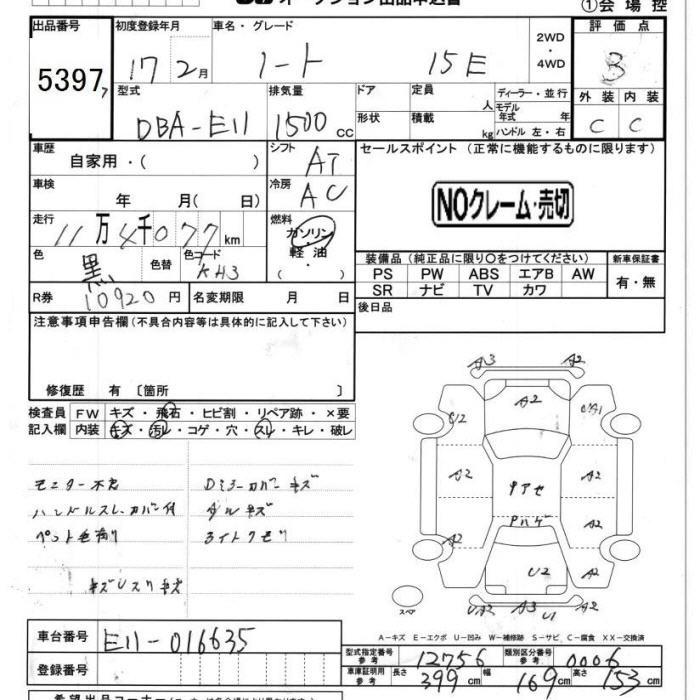 ①会場控
出品番号
5397
初度登録年月
17 2月
車名・グレード
ノート 15E
2WD
・
4WD
評価点
3
型式
DBA-E11
排気量
1500cc
ドア
定員 人
ディーラー・並行
モデル年式 年
形状
積載 kg
ハンドル 左・右
外装 内装
C C
車歴
自家用・( )
シフト
AT
車検
年 月( 日)
冷房
AC
走行
11万4千077km
燃料
ガソリン
・
軽油
色
黒
色替
色コード
KH3
R券
10920円
名変期限 月 日
セールスポイント(正常に機能するものに限ります)
NOクレーム・売切
装備品(純正品に限り○をつけてください)
新車保証書
PS PW ABS エアB AW
SR ナビ TV カワ
有・無
後日品
注意事項申告欄(不具合内容等は具体的に記入して下さい)
修復歴 有〔箇所 〕
検査員
記入欄
FW キズ・飛石・ヒビ割・リペア跡・×要
内装 キズ・汚レ・コゲ・穴・スレ・キレ・破レ
ハンドルスレ・カバー付
Dミラーカバーキズ
A3 A2
A2
U2
A2 A2
A2
A2 A2
U2
A2
UA2 A3 U1
スペア
A-キズ E-エクボ U-凹み W-補修跡 S-サビ C-腐食 XX-交換済
車台番号
E11-016635
登録番号
型式指定番号
参考
12756
類別区分番号
参考
0006
車庫証明用
参考
長さ 399cm 幅 169cm 高さ 153cm